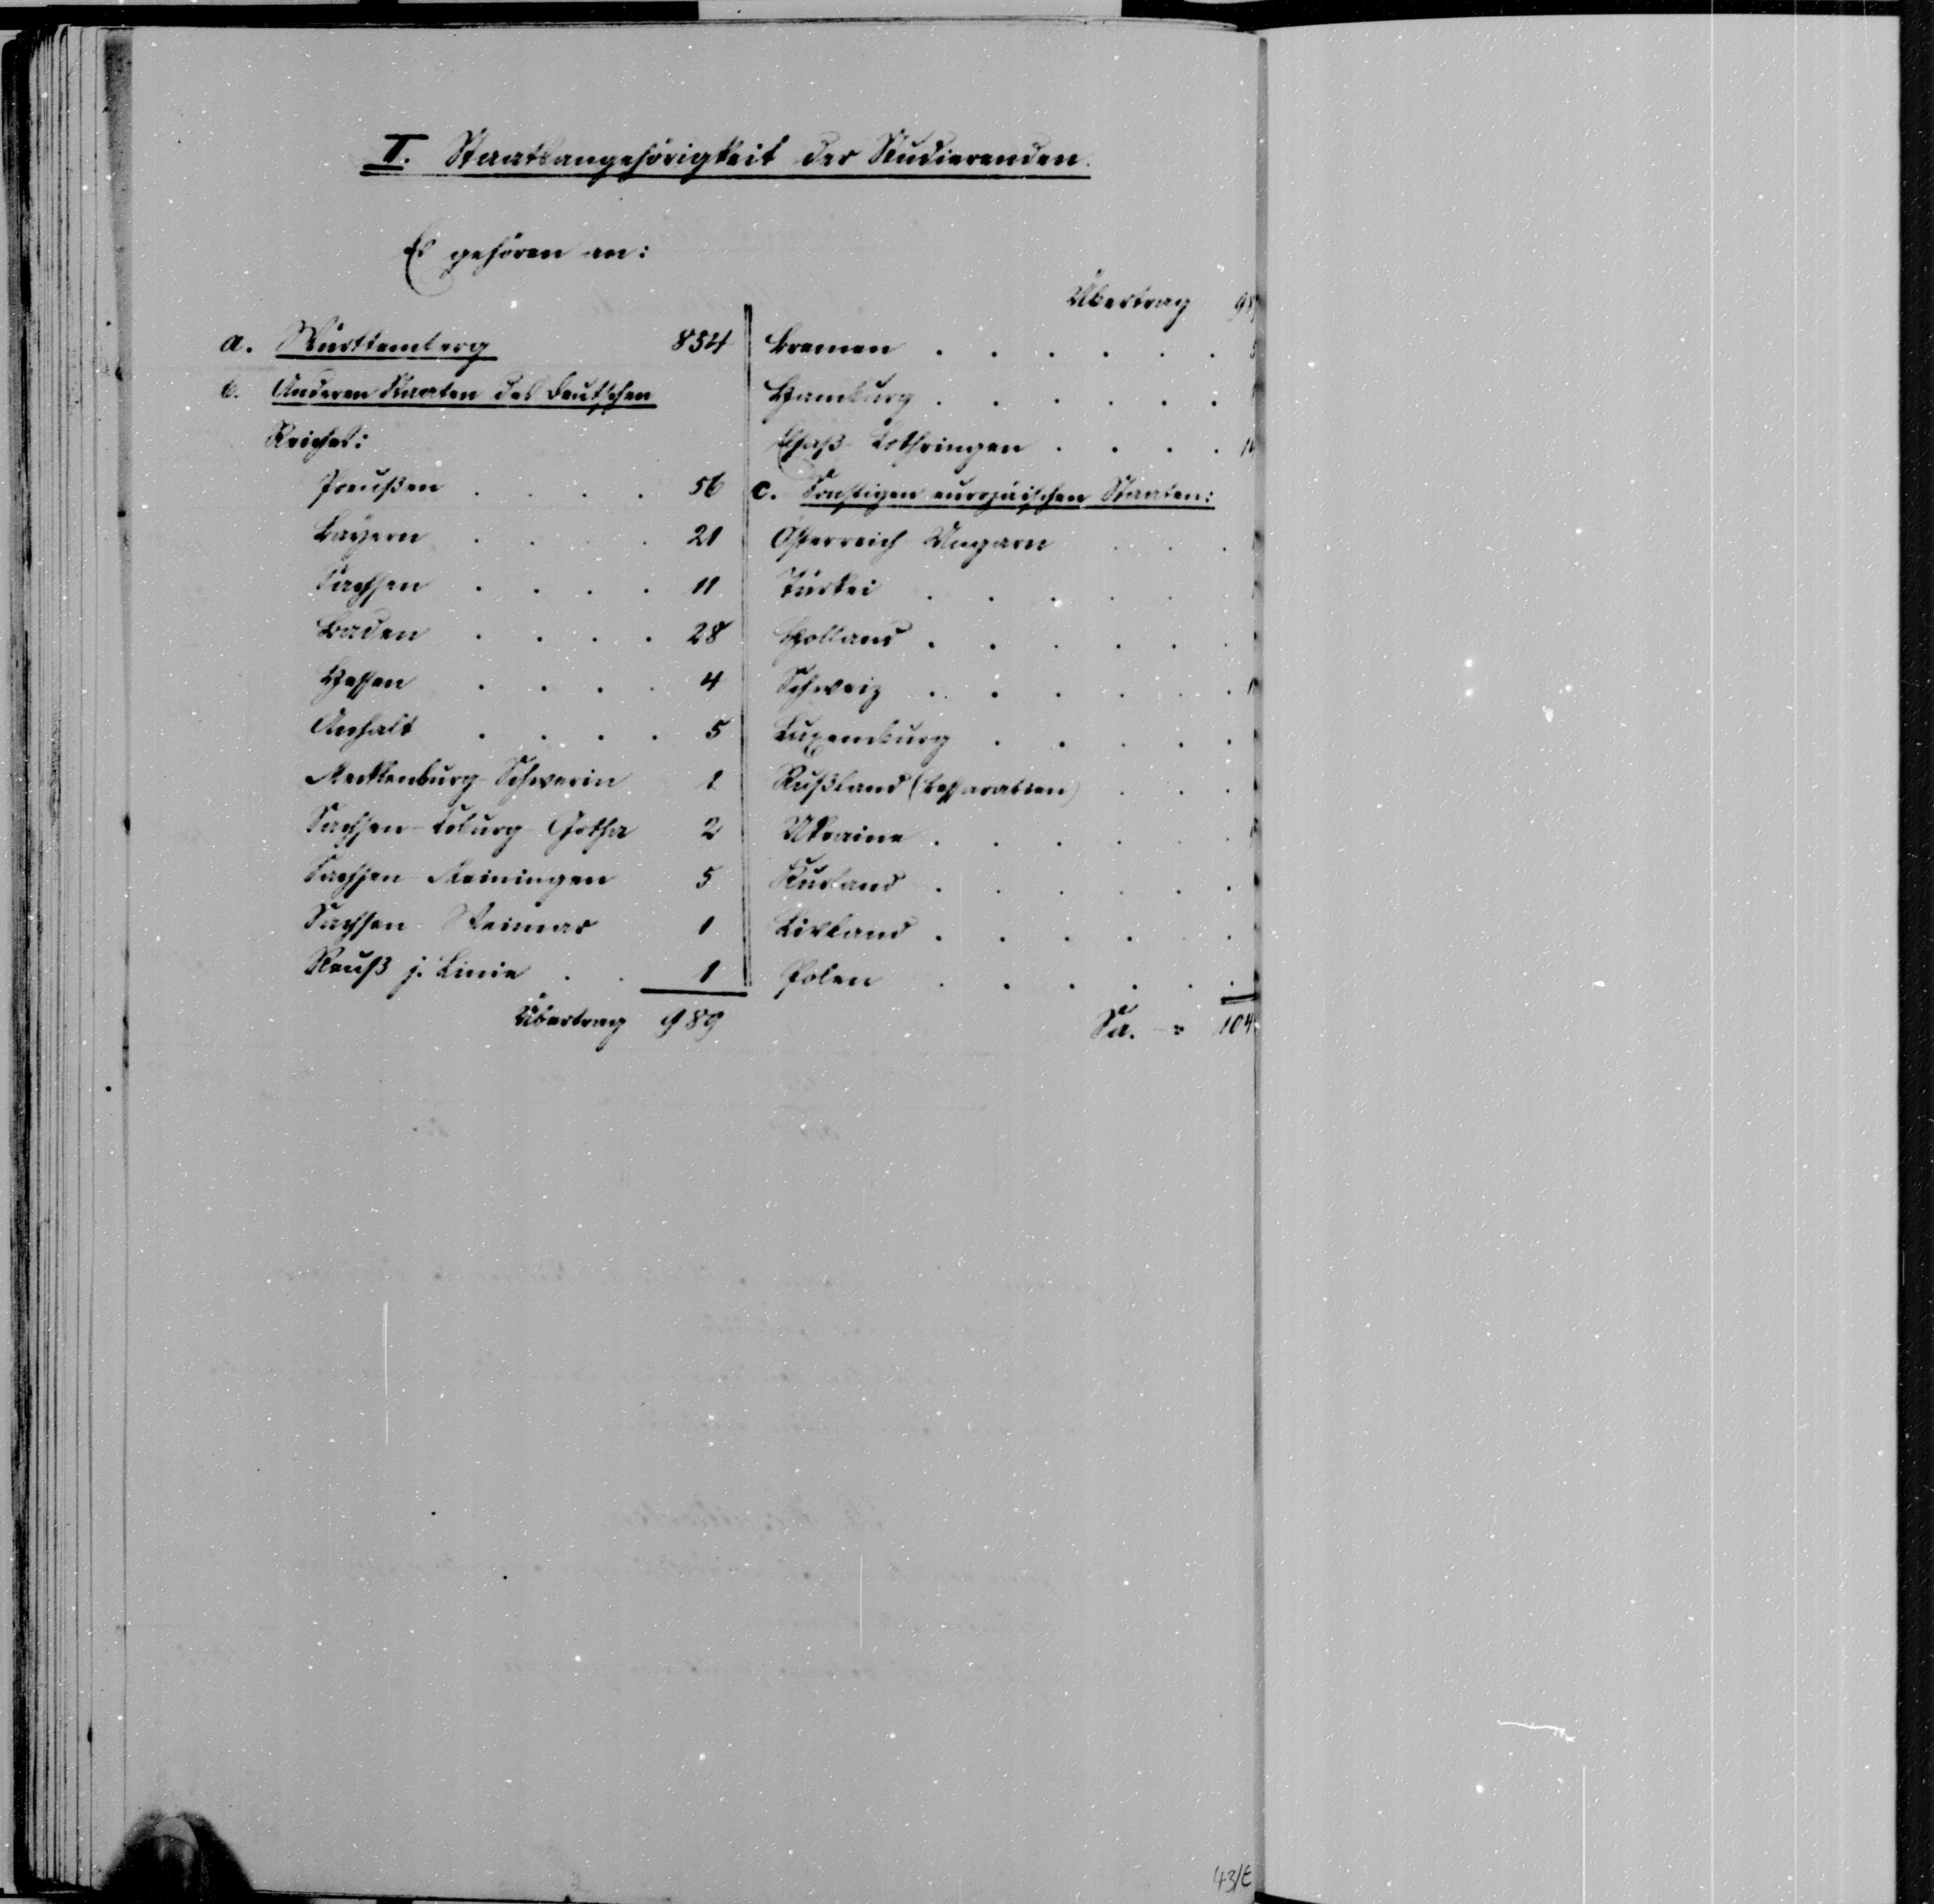 II. Staatsangehörigkeit der Studierenden.
Es gehören an:
a. Württemberg 854
b. Anderen Staaten des Deutschen
Reiches:
Preußen . . . . 56
Bayern . . . . 21
Sachsen . . . . 11
Baden . . . . 28
Hessen . . . . 4
Anhalt . . . . 5
Mecklenburg-Schwerin 1
Sachsen-Coburg Gotha 2
Sachsen Meiningen 5
Sachsen-Weimar 1
Reuß j. Linie . . 1
Übertrag 989
Übertrag 98
Bremen . . . . .
Hamburg . . . . .
Elsaß-Lothringen . . . .
c. Sonstigen europäischen Staaten:
Österreich Ungarn . . .
Türkei . . . . .
Holland . . . . . .
Schweiz . . . . . .
Luxemburg . . . . .
Rußland (Bessarabien) . . .
Ukraine . . . . . .
Kurland . . . . . .
Livland . . . . . .
Polen . . . . . .
Sa. = 104
43/t